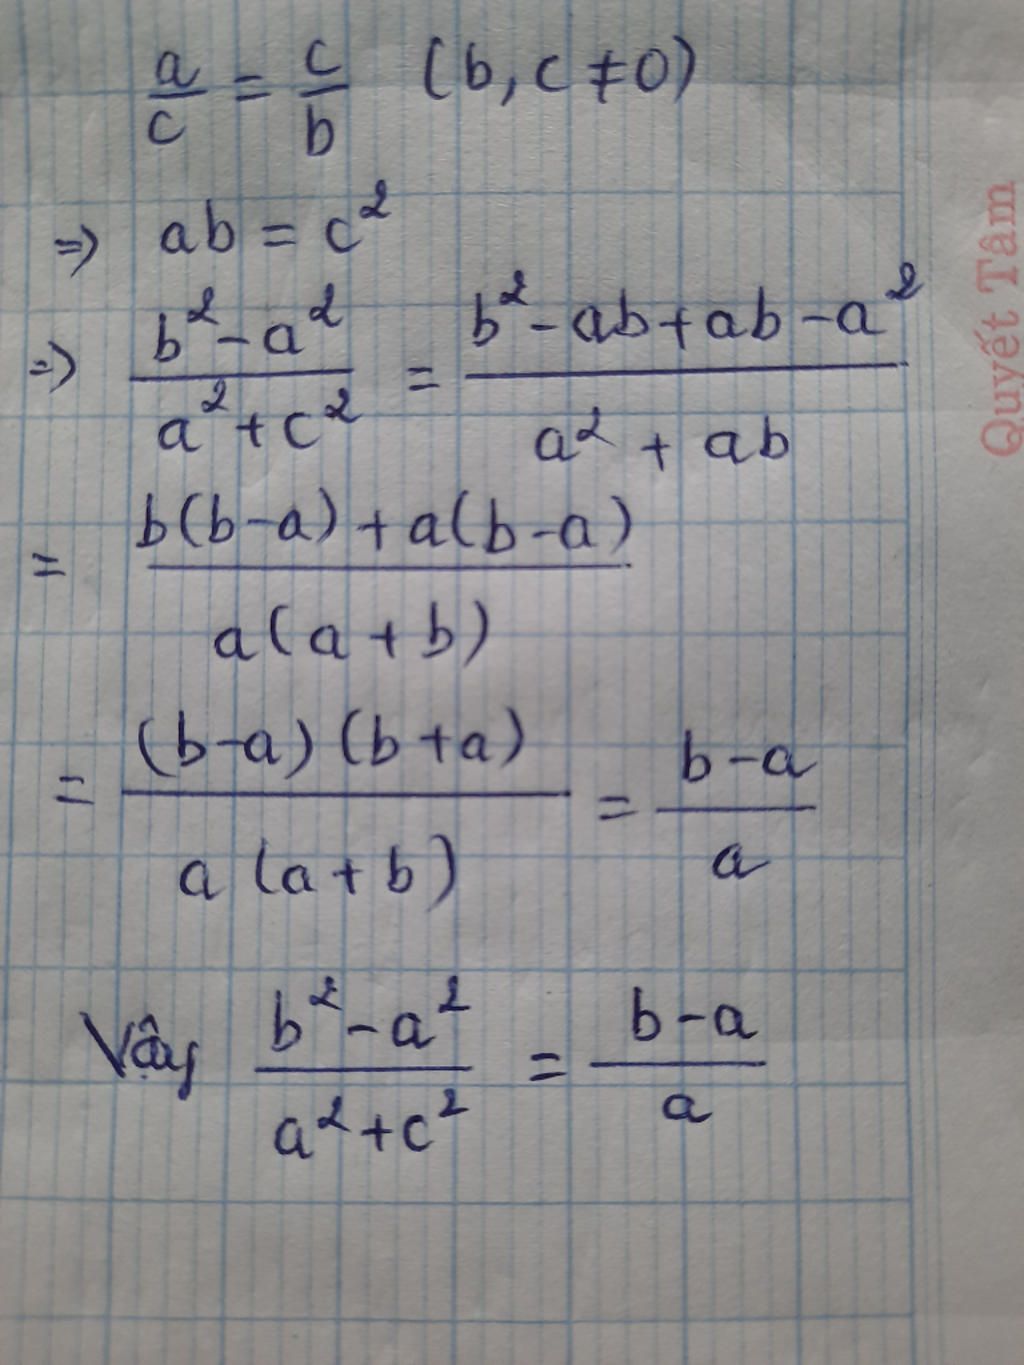 a/c = c/b (b, c ≠ 0)
=> ab = c²
=> (b² - a²)/(a² + c²) = (b² - ab + ab - a²)/(a² + ab)
= (b(b-a) + a(b-a))/(a(a+b))
= ((b-a)(b+a))/(a(a+b)) = (b-a)/a
Vậy (b² - a²)/(a² + c²) = (b-a)/a
Quyết Tâm